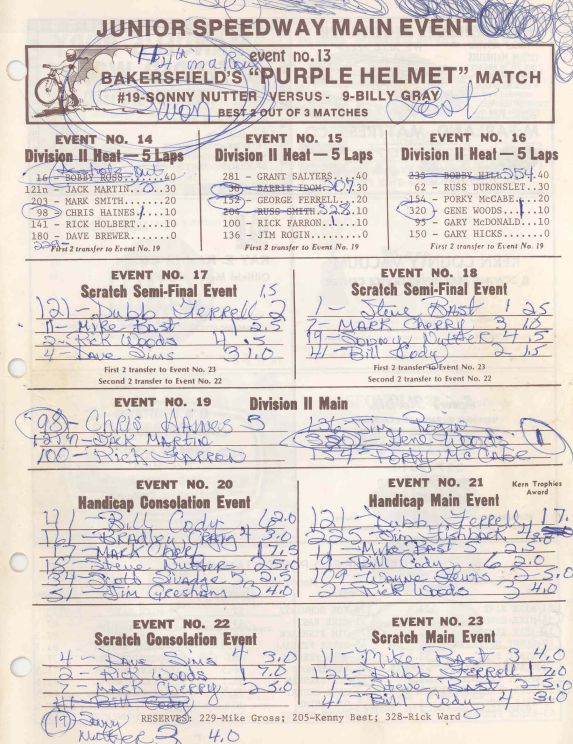 JUNIOR SPEEDWAY MAIN EVENT
event no.13
BAKERSFIELD'S "PURPLE HELMET" MATCH
#19-SONNY NUTTER -VERSUS- 9-BILLY GRAY
won Lost
BEST 2 OUT OF 3 MATCHES
EVENT NO. 14
Division II Heat — 5 Laps
16 - BOBBY ROSS.....40
121n - JACK MARTIN..0..30
203 - MARK SMITH.....20
98 - CHRIS HAINES 1....10
141 - RICK HOLBERT....10
180 - DAVE BREWER.....0
First 2 transfer to Event No. 19
EVENT NO. 15
Division II Heat — 5 Laps
281 - GRANT SALYERS..40
38 - BARRIE IDOM...30
152 - GEORGE FERRELL..20
204 - RUSS SMITH 328.10
100 - RICK FARRON.1...0
136 - JIM ROGIN.......0
First 2 transfer to Event No. 19
EVENT NO. 16
Division II Heat — 5 Laps
235 - BOBBY HILL 354.40
62 - RUSS DURONSLET..30
154 - PORKY McCABE..20
320 GENE WOODS..1...10
95 - GARY McDONALD...10
150 - GARY HICKS.....0
First 2 transfer to Event No. 19
EVENT NO. 17
Scratch Semi-Final Event
121 - Dubb Ferrell 2 1.5
11 - Mike Bast 1 2.5
2 - Rick Woods 4 .5
4 - Dave Sims 3 1.0
First 2 transfer to Event No. 23
Second 2 transfer to Event No. 22
EVENT NO. 18
Scratch Semi-Final Event
1 - Steve Bast 1 2.5
7 - MARK CHERRY 3 1.0
19 - Sonny Nutter 4 .5
41 - Bill Cody 2 1.5
First 2 transfer to Event No. 23
Second 2 transfer to Event No. 22
EVENT NO. 19 Division II Main
98 - Chris Haines 5
121n - Jack Martin
100 - Rick Farron
136 - Jim Rogin
320 - Gene Woods 1
154 - Porky McCabe
EVENT NO. 20
Handicap Consolation Event
41 - Bill Cody 6 2.0
161 - Bradley Craig 4 3.0
17 - Mark Oberg 1 7.5
15 - Steve Nutter 2 5.0
34 - Scott Sivadge 5 2.5
51 - Jim Gresham 3 4.0
EVENT NO. 21
Kern Trophies
Award
Handicap Main Event
121 - Dubb Ferrell 1 7.
225 - Jim Fishback 4
11 - Mike Bast 5 2.5
19 - Bill Cody 6 2.0
109 - Wayne
2 - Rick Woods 3 4.0
EVENT NO. 22
Scratch Consolation Event
4 - Dave Sims 4 3.0
2 - Rick Woods 1 7.0
7 - Mark Cherry 2 5.0
41 - Bill Cody
19 Sonny
Nutter 3 4.0
EVENT NO. 23
Scratch Main Event
11 - Mike Bast 3 4.0
121 - Dubb Ferrell 1 7.0
1 - Steve Bast 2 5.0
41 - Bill Cody 4 3.0
RESERVES: 229-Mike Gross; 205-Kenny Best; 328-Rick Ward